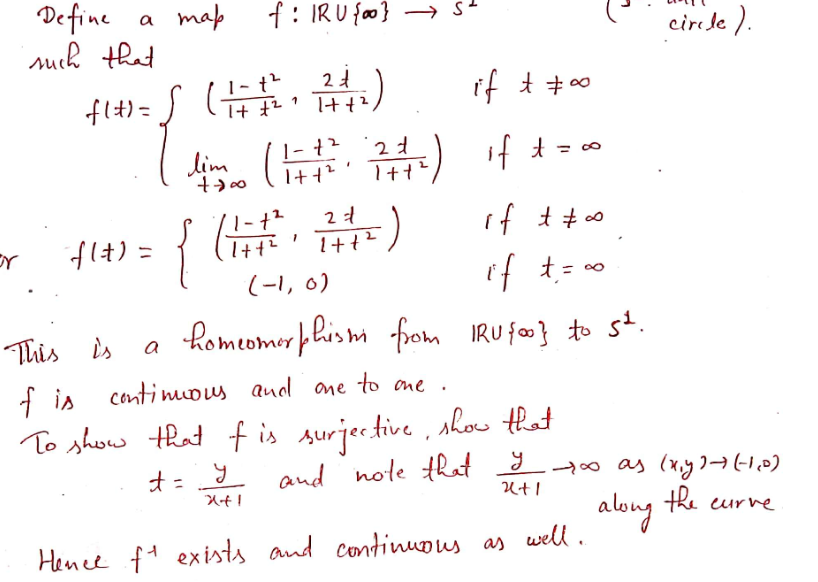 Define a map f : IR ∪ {∞} → S¹ circle).
such that
f(t) = { ( (1 - t²)/(1 + t²) , 2t/(1 + t²) ) if t ≠ ∞
lim t→∞ ( (1 - t²)/(1 + t²) , 2t/(1 + t²) ) if t = ∞
or f(t) = { ( (1 - t²)/(1 + t²) , 2t/(1 + t²) ) if t ≠ ∞
(-1, 0) if t = ∞
This is a homeomorphism from IR ∪ {∞} to S¹.
f is continuous and one to one.
To show that f is surjective, show that
t = y/(x+1) and note that y/(x+1) → ∞ as (x,y) → (-1,0)
along the curve
Hence f⁻¹ exists and continuous as well.